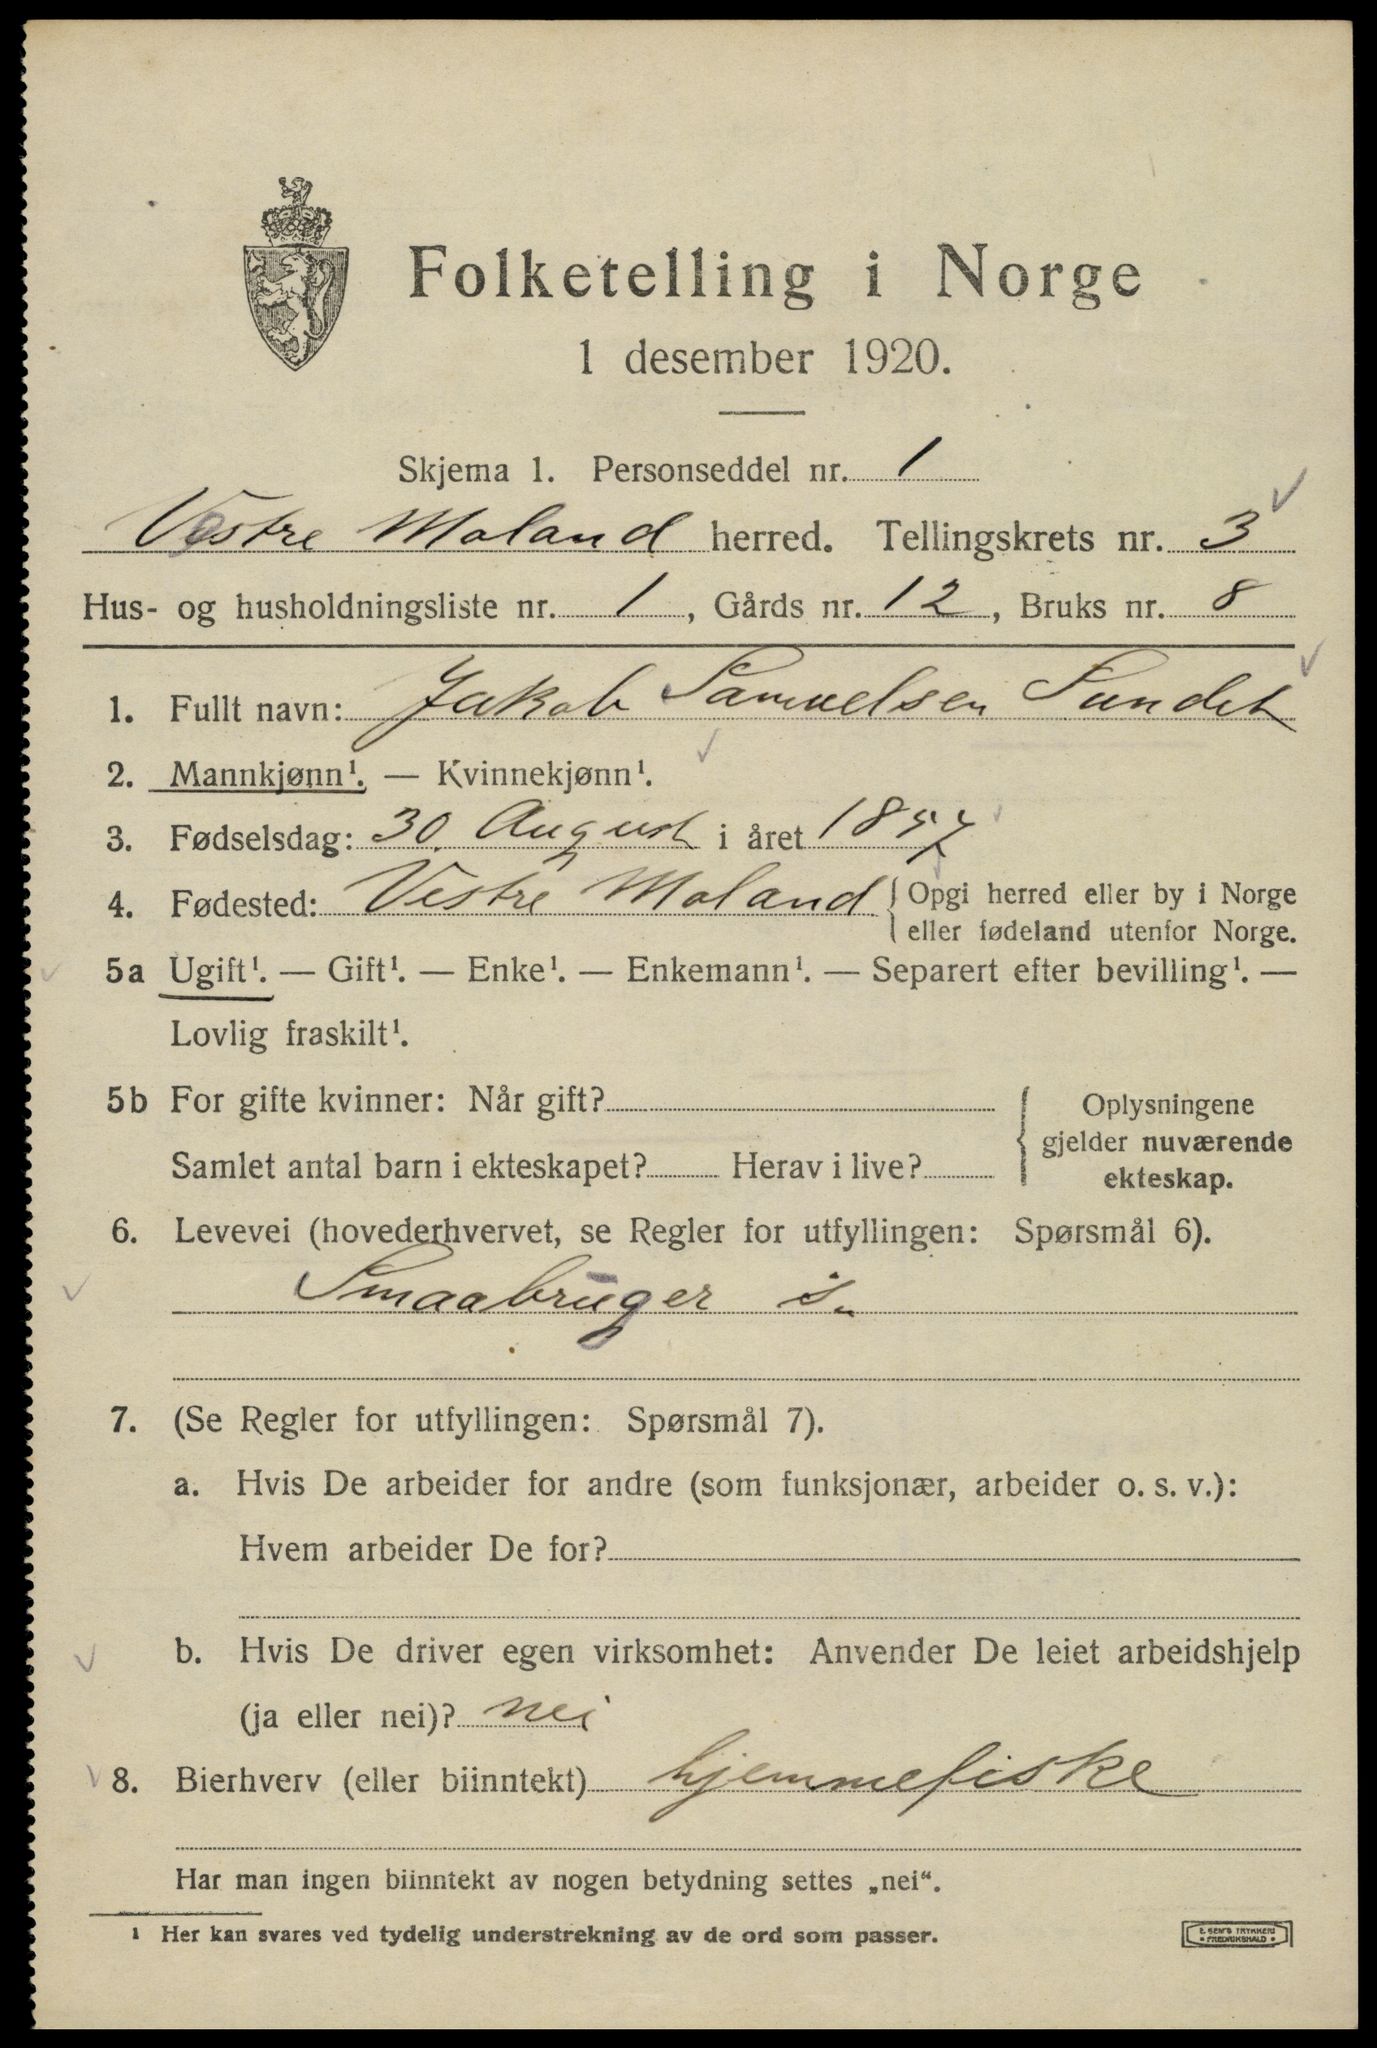 Folketelling i Norge
1 desember 1920.
Skjema 1. Personseddel nr. 1
Vestre Moland herred. Tellingskrets nr. 3
Hus- og husholdningsliste nr. 1, Gårds nr. 12, Bruks nr. 8
1. Fullt navn: Jakob Samuelsen Sundet
2. Mannkjønn¹. — Kvinnekjønn¹.
3. Fødselsdag: 30. August i året 1857
4. Fødested: Vestre Moland { Opgi herred eller by i Norge
eller fødeland utenfor Norge.
5a Ugift¹. — Gift¹. — Enke¹. — Enkemann¹. — Separert efter bevilling¹. —
Lovlig fraskilt¹.
5b For gifte kvinner: Når gift?
Samlet antal barn i ekteskapet? Herav i live?
Oplysningene
gjelder nuværende
ekteskap.
6. Levevei (hovederhvervet, se Regler for utfyllingen: Spørsmål 6).
Smaabruger
7. (Se Regler for utfyllingen: Spørsmål 7).
a. Hvis De arbeider for andre (som funksjonær, arbeider o. s. v.):
Hvem arbeider De for?
b. Hvis De driver egen virksomhet: Anvender De leiet arbeidshjelp
(ja eller nei)? nei
8. Bierhverv (eller biinntekt) hjemmefiske
Har man ingen biinntekt av nogen betydning settes „nei“.
¹ Her kan svares ved tydelig understrekning av de ord som passer.
TRYKKERI
FREDRIKSHALD